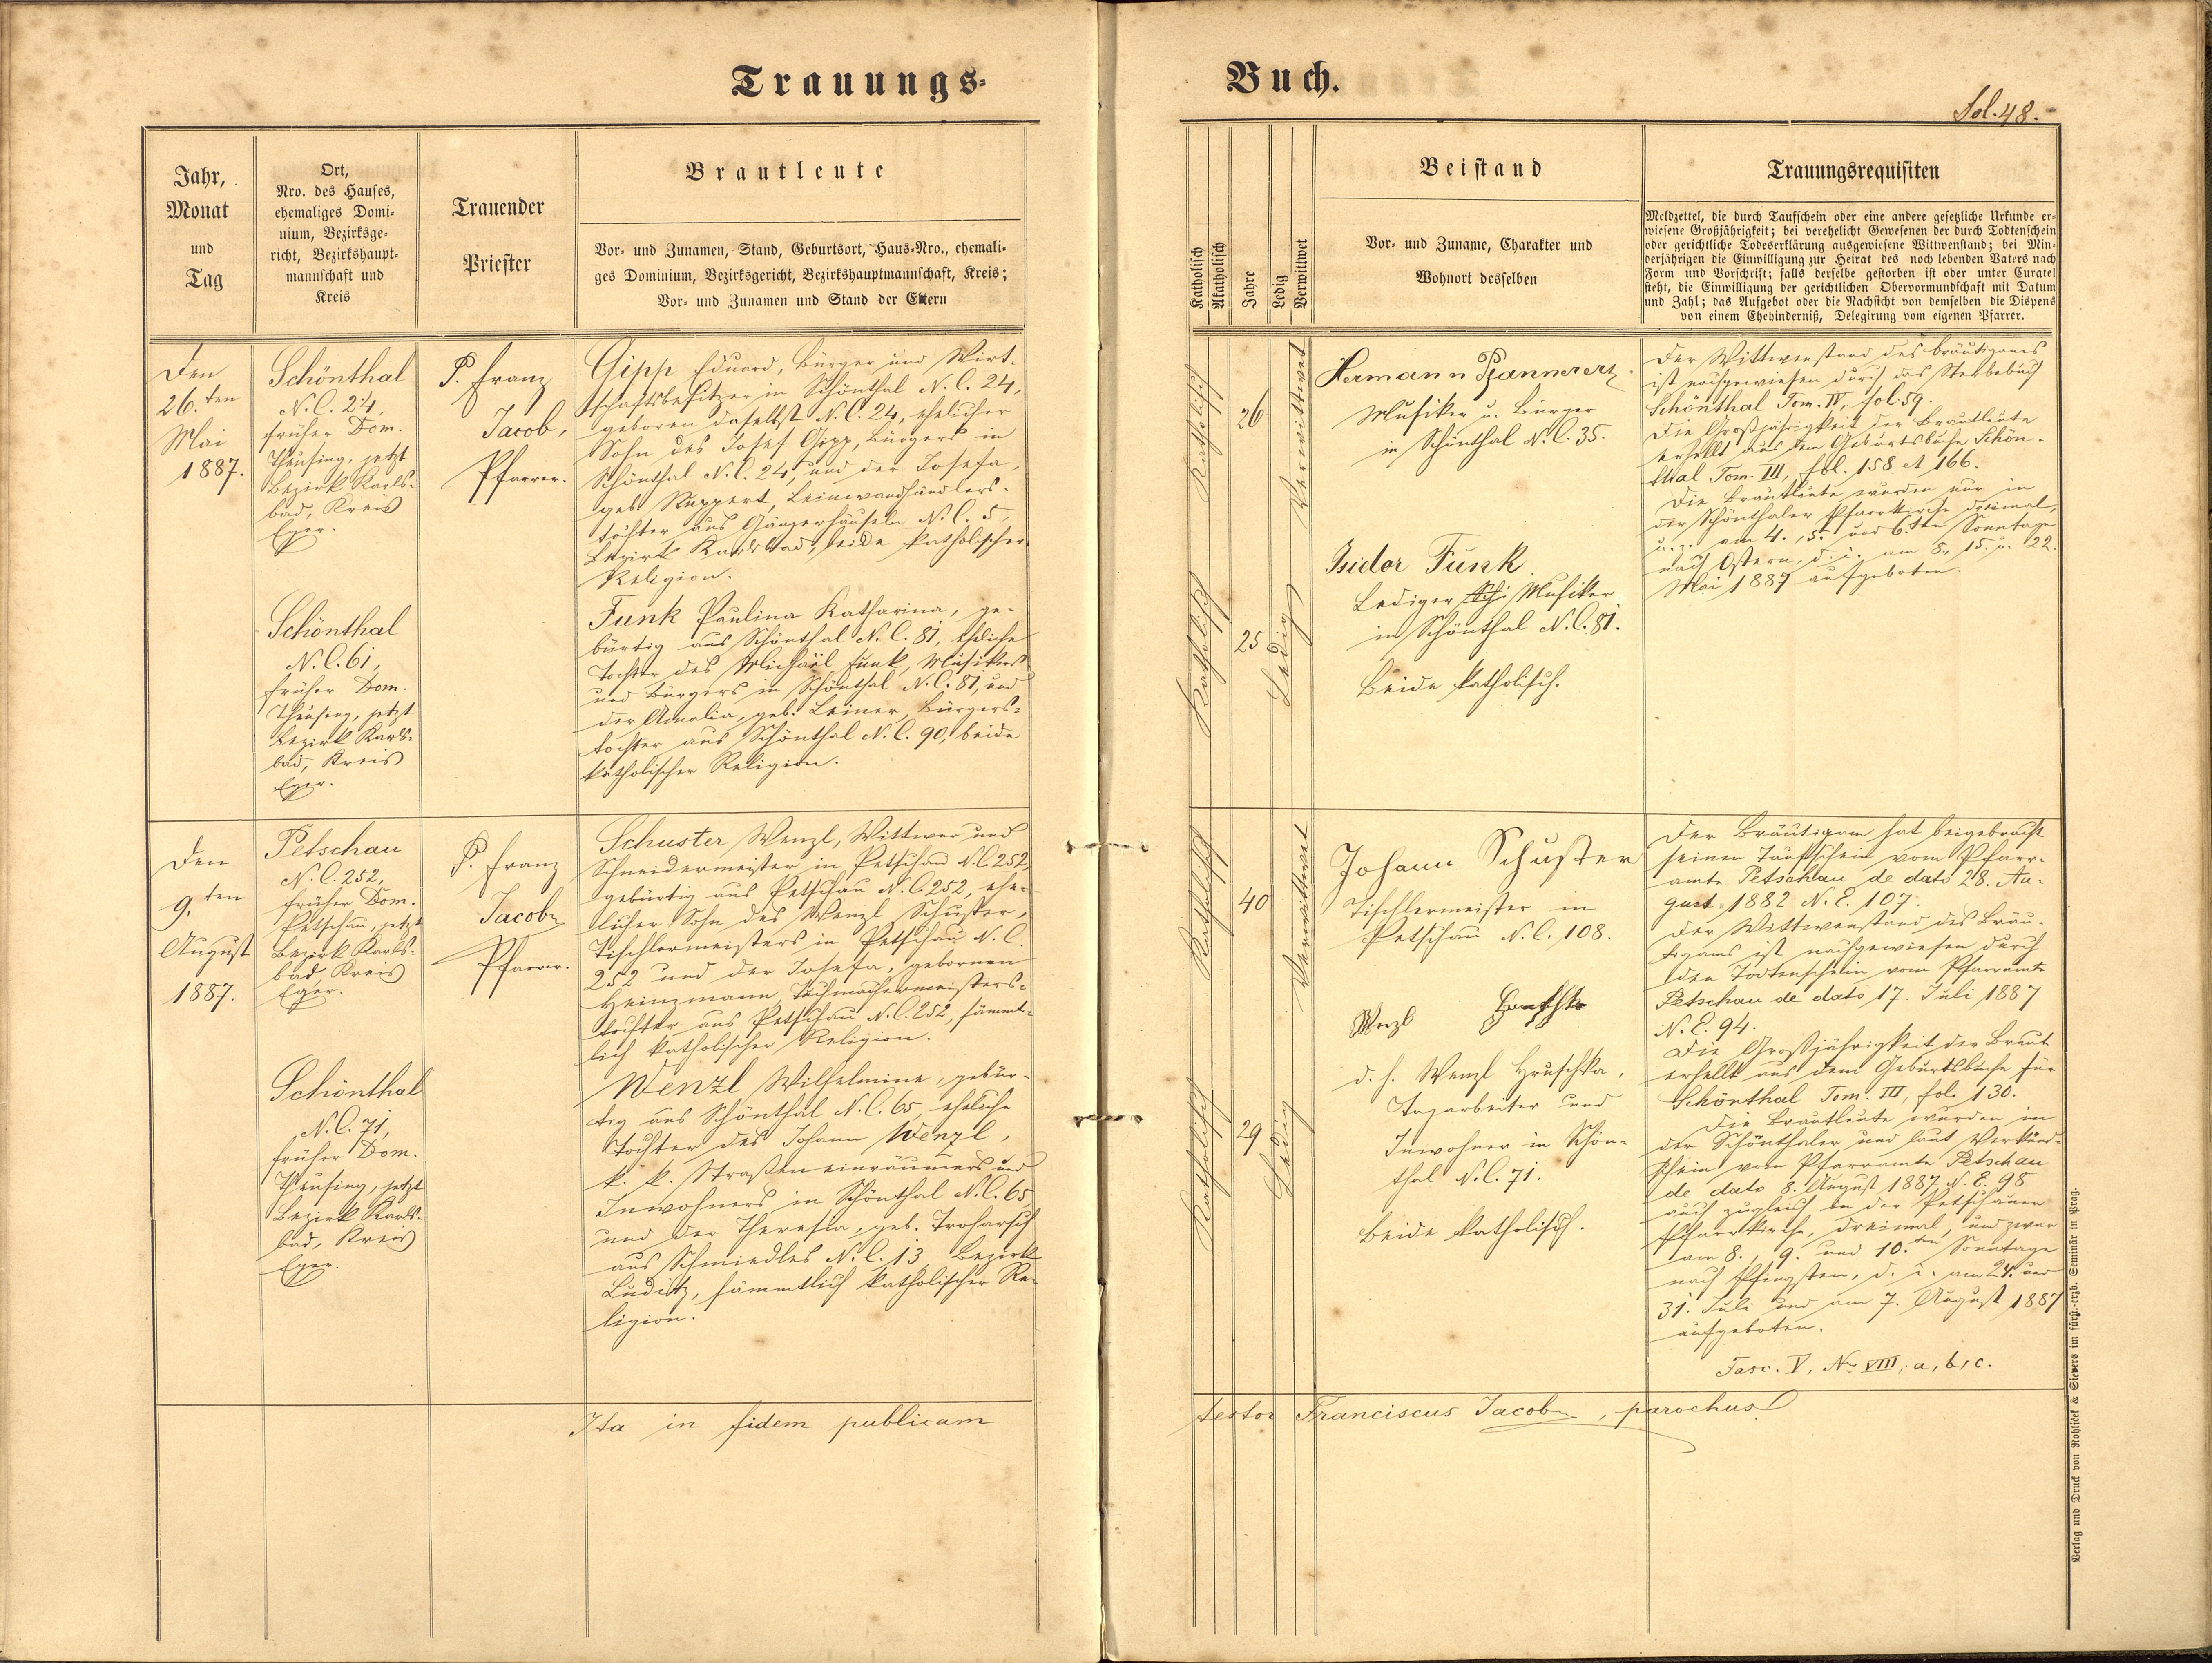 Trauungs-
Buch.
Fol. 48.
Jahr,
Monat
und
Tag
Ort,
Nro. des Hauses,
ehemaliges Domi-
nium, Bezirksge-
richt, Bezirkshaupt-
mannschaft und
Kreis
Trauender
Priester
Brautleute
Vor- und Zunamen, Stand, Geburtsort, Haus-Nro., ehemali-
ges Dominium, Bezirksgericht, Bezirkshauptmannschaft, Kreis;
Vor- und Zunamen und Stand der Eltern
Katholisch
Akatholisch
Jahre
Ledig
Verwittwet
Beistand
Vor- und Zuname, Charakter und
Wohnort desselben
Trauungsrequisiten
Meldzettel, die durch Taufschein oder eine andere gesetzliche Urkunde er-
wiesene Großjährigkeit; bei verehelicht Gewesenen der durch Todtenschein
oder gerichtliche Todeserklärung ausgewiesene Wittwenstand; bei Min-
derjährigen die Einwilligung zur Heirat des noch lebenden Vaters nach
Form und Vorschrift; falls derselbe gestorben ist oder unter Curatel
steht, die Einwilligung der gerichtlichen Obervormundschaft mit Datum
und Zahl; das Aufgebot oder die Nachsicht von demselben die Dispens
von einem Ehehinderniß, Delegirung vom eigenen Pfarrer.
Den
26.ten
Mai
1887.
Schönthal
N. C. 24,
früher Dom.
Theusing, jetzt
Bezirk Karls-
bad, Kreis
Eger.
P. Franz
Jacob,
Pfarrer.
Gipp Eduard, Bürger und Wirt-
schaftsbesitzer in Schönthal N. C. 24,
geboren daselbst N. C. 24, ehelicher
Sohn des Josef Gipp, Bürgers in
Schönthal N. C. 24, und der Josefa,
geb. Ruppert, Leinwandhändlers-
tochter aus Gängerhäuseln N. C. 5,
Bezirk Karlsbad, beide katholischer
Religion.
Schönthal
N. C. 61,
früher Dom.
Theusing, jetzt
Bezirk Karls-
bad, Kreis
Eger.
Funk Paulina Katharina, ge-
bürtig aus Schönthal N. C. 81, eheliche
Tochter des Michael Funk, Musikers
und Bürgers in Schönthal N. C. 81, und
der Amalia, geb. Leiner, Bürgers-
tochter aus Schönthal N. C. 90, beide
katholischer Religion.
Katholisch
26
Verwittwet
Katholisch
25
Ledig
Hermann Pfannerer
Musiker u. Bürger
in Schönthal N. C. 35.
Isidor Funk
Lediger Musiker
in Schönthal N. C. 81.
Beide katholisch.
Der Wittwenstand des Bräutigams
ist nachgewiesen durch das Sterbebuch
Schönthal Tom. IV, fol. 59.
Die Großjährigkeit der Brautleute
erhellt aus dem Geburtsbuche Schön-
thal Tom. III, fol. 158 et 166.
Die Brautleute wurden nur in
der Schönthaler Pfarrkirche dreimal,
u. z. am 4., 5. und 6.ten Sonntage
nach Ostern, d. i. am 8., 15. u. 22.
Mai 1887 aufgeboten.
Den
9.ten
August
1887.
Petschau
N. C. 252,
früher Dom.
Petschau, jetzt
Bezirk Karls-
bad, Kreis
Eger.
P. Franz
Jacob,
Pfarrer.
Schuster Wenzl, Wittwer und
Schneidermeister in Petschau N. C. 252,
gebürtig aus Petschau N. C. 252, ehe-
licher Sohn des Wenzl Schuster,
Tischlermeisters in Petschau N. C.
252 und der Josefa, gebornen
Heinzmann, Tuchmachermeisters-
tochter aus Petschau N. C. 252, sämmt-
lich katholischer Religion.
Schönthal
N. C. 71,
früher Dom.
Theusing, jetzt
Bezirk Karls-
bad, Kreis
Eger.
Wenzl Wilhelmine, gebür-
tig aus Schönthal N. C. 65, eheliche
Tochter des Johann Wenzl,
k. k. Straßeneinräumers und
Inwohners in Schönthal N. C. 65
und der Theresia, geb. Troharsch
aus Schmiedles N. C. 13, Bezirk
Luditz, sämmtlich katholischer Re-
ligion.
Katholisch
40
Verwittwet
Katholisch
29
Ledig
Johann Schuster
Tischlermeister in
Petschau N. C. 108.
Wenzl
d. h. Wenzl Hruschka,
Tagarbeiter und
Inwohner in Schön-
thal N. C. 71.
Beide katholisch.
Der Bräutigam hat beigebracht
seinen Taufschein vom Pfarr-
amte Petschau de dato 28. Au-
gust 1882 N. E. 107.
Der Wittwenstand des Bräu-
tigams ist nachgewiesen durch
den Todtenschein vom Pfarramte
Petschau de dato 17. Juli 1887
N. E. 94.
Die Großjährigkeit der Braut
erhellt aus dem Geburtsbuche für
Schönthal Tom. III, fol. 130.
Die Brautleute wurden in
der Schönthaler und laut Verkünd-
schein vom Pfarramte Petschau
de dato 8. August 1887 N. E. 98
auch zugleich in der Petschauer
Pfarrkirche, dreimal, und zwar
am 8., 9. und 10.ten Sonntage
nach Pfingsten, d. i. am 24. und
31. Juli und am 7. August 1887
aufgeboten.
Fasc. V, Nr. VIII, a, b, c.
Ita in fidem publicam
testor Franciscus Jacob, parochus
Verlag und Druck von Rohlíček & Sievers im fürst.-erzb. Seminär in Prag.